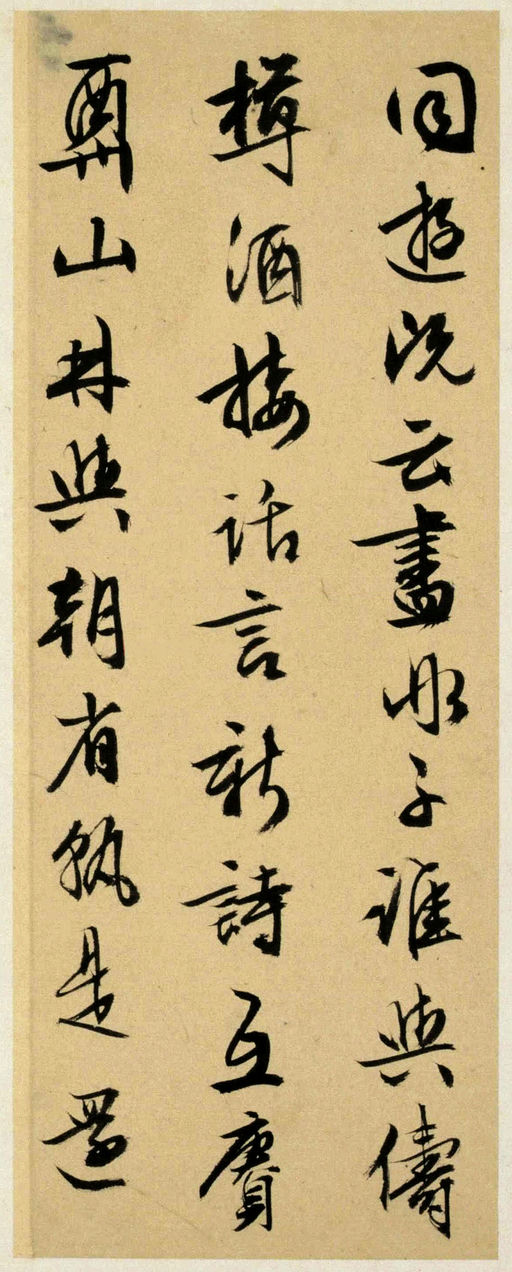 同遊况云盡非子誰與儔
樽酒接話言新詩互賡
酬山林與朝省孰是還